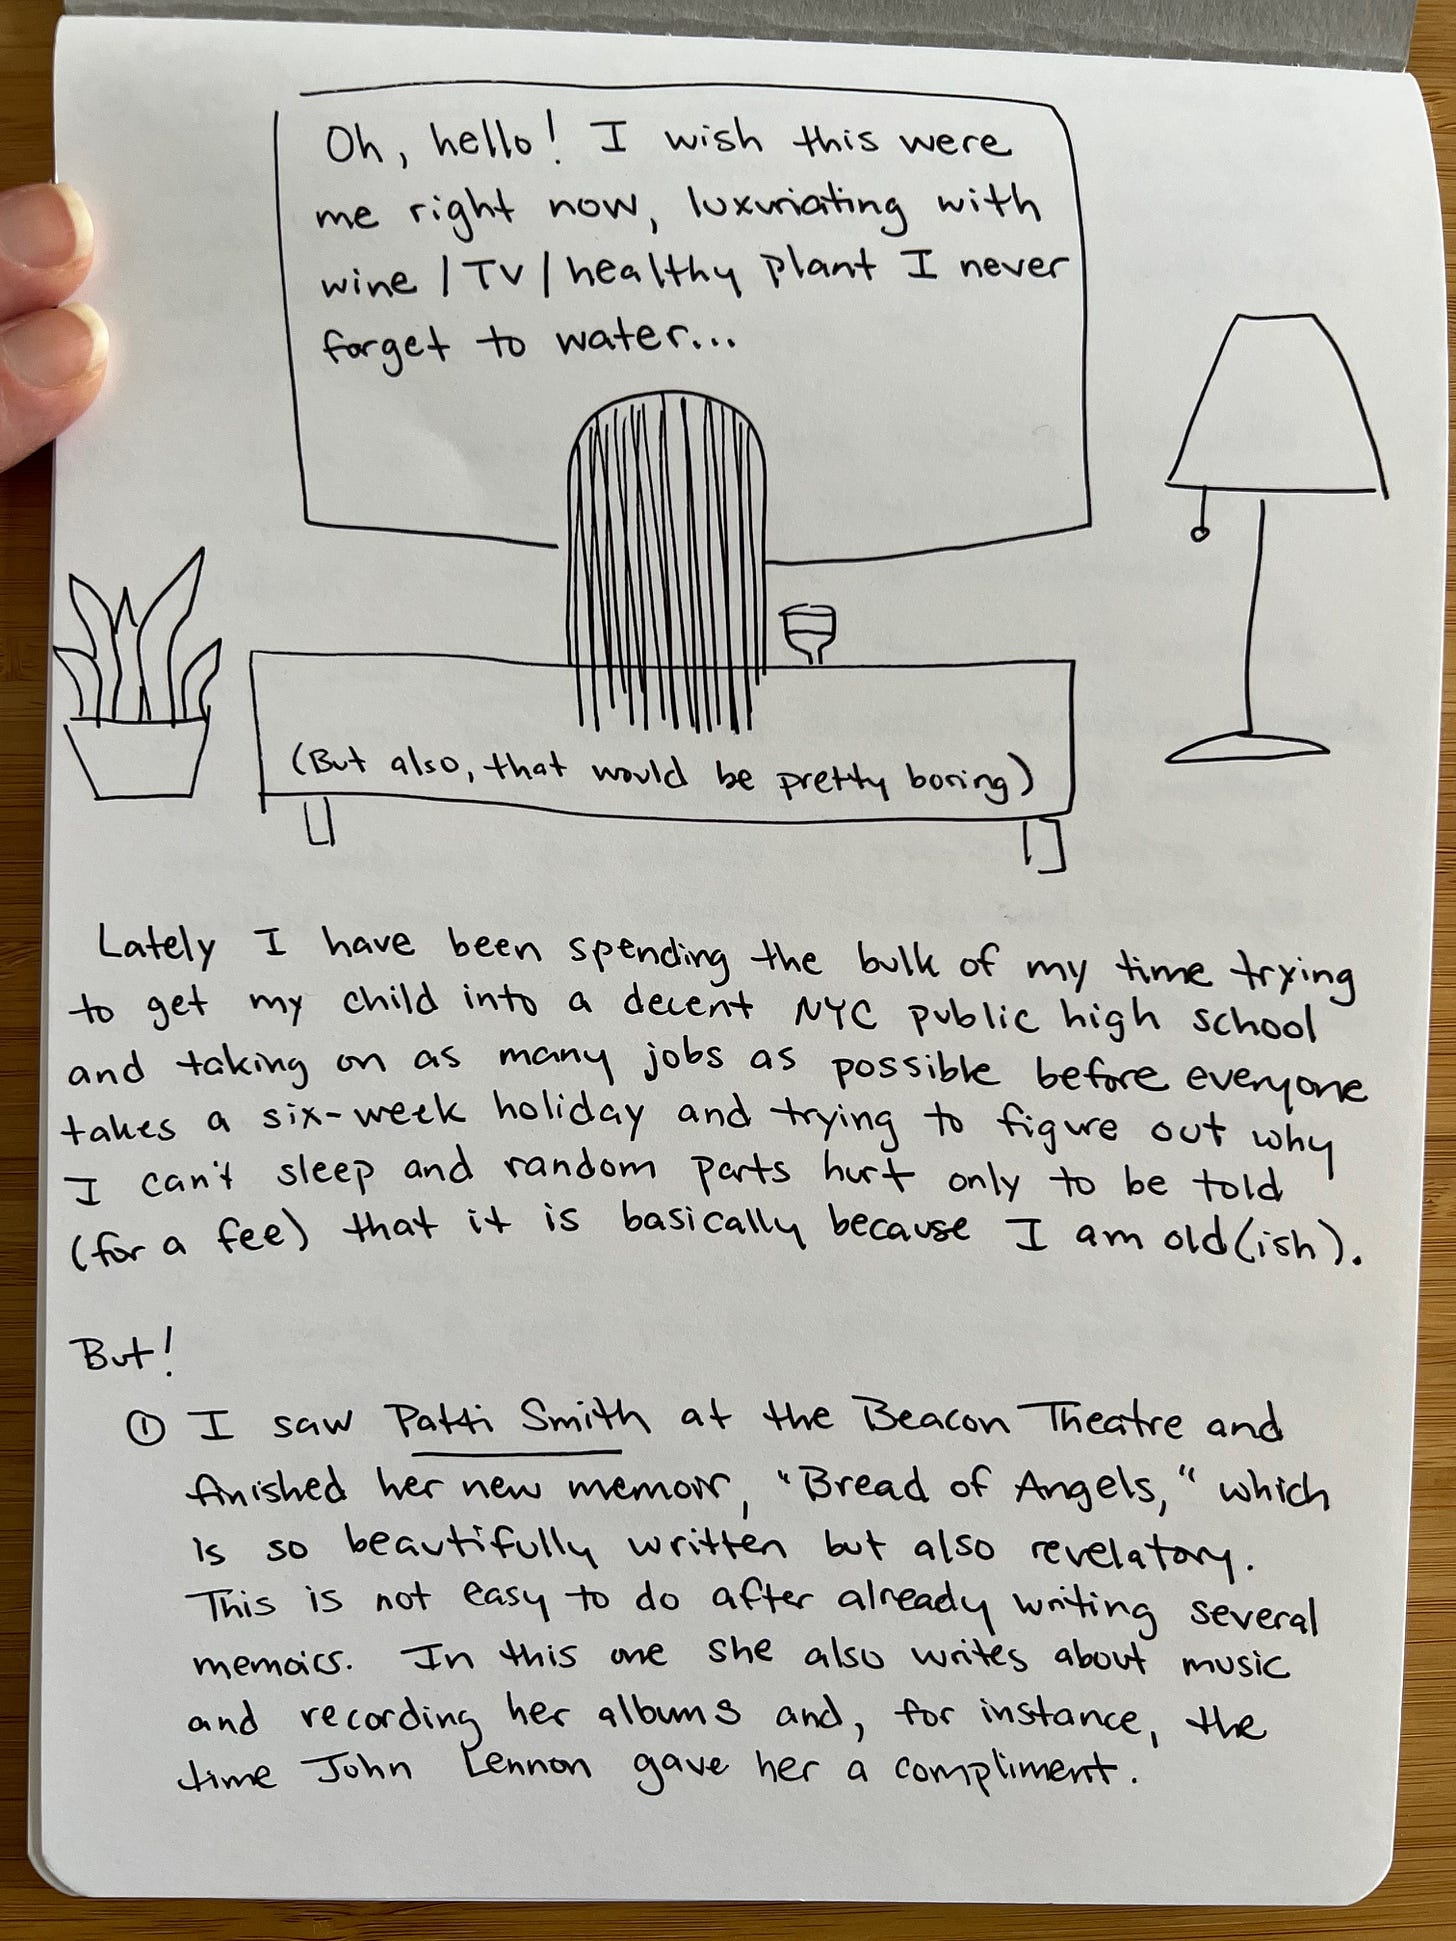 Oh, hello! I wish this were
me right now, luxuriating with
wine / TV / healthy plant I never
forget to water...
(But also, that would be pretty boring)
Lately I have been spending the bulk of my time trying
to get my child into a decent NYC public high school
and taking on as many jobs as possible before everyone
takes a six-week holiday and trying to figure out why
I can't sleep and random parts hurt only to be told
(for a fee) that it is basically because I am old(ish).
But!
① I saw Patti Smith at the Beacon Theatre and
finished her new memoir, "Bread of Angels," which
is so beautifully written but also revelatory.
This is not easy to do after already writing several
memoirs. In this one she also writes about music
and recording her albums and, for instance, the
time John Lennon gave her a compliment.